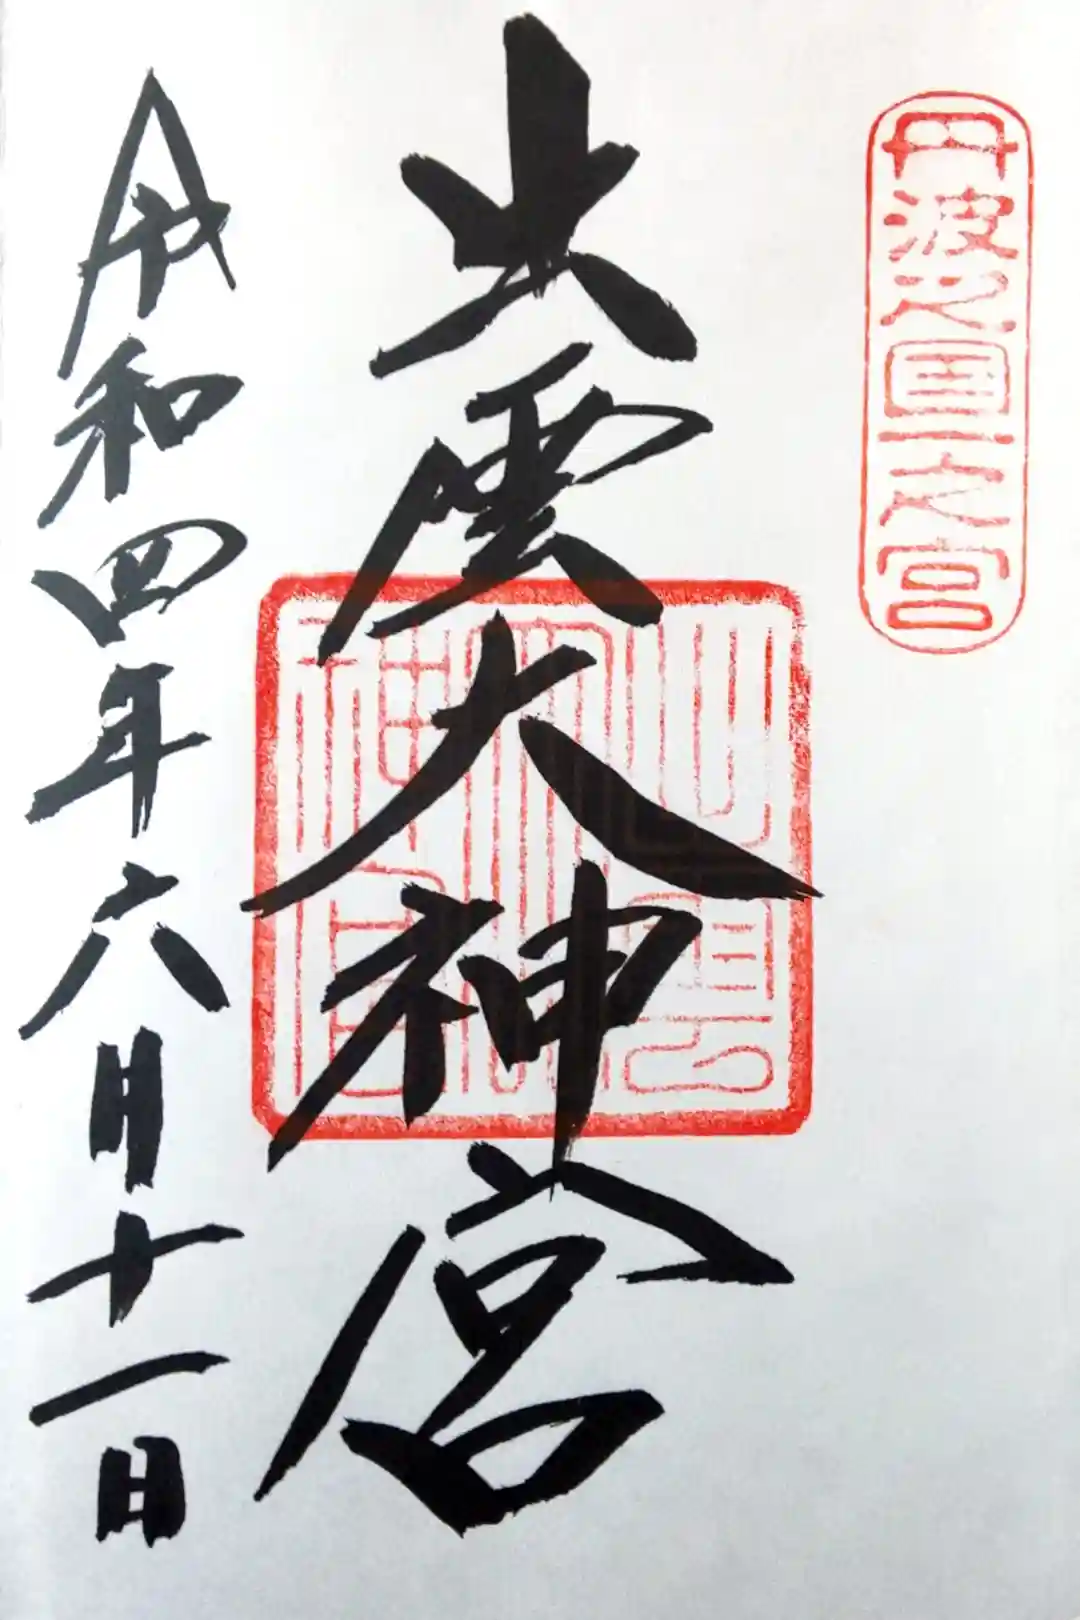 丹波之国一之宮
出雲大神宮
出雲
大
神宮
令和四年六月十一日